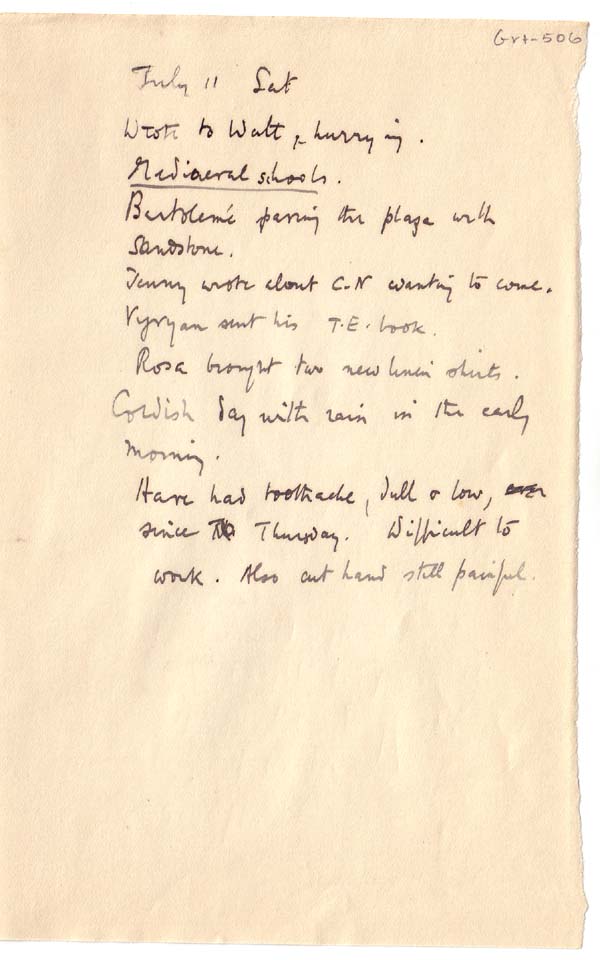 Grt-506
July 11 Sat
Wrote to Walt, hurrying.
Mediaeval schools.
Bartolomé paving the plaza with
sandstone.
Jenny wrote about C-N wanting to come.
Vyvyan sent his T.E. book.
Rosa brought two new linen shirts.
Coldish day with rain in the early
morning.
Have had toothache, dull & low, ever
since Th Thursday. Difficult to
work. Also cut hand still painful.